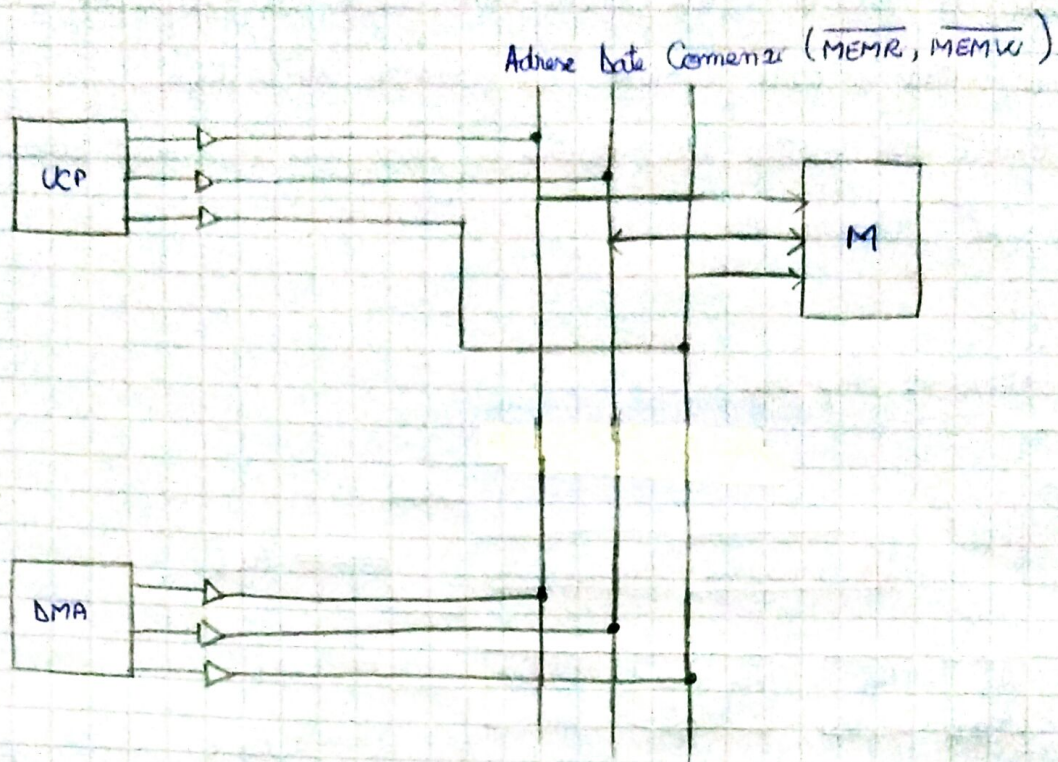 Adrese Date Comenzi (M̅E̅M̅R̅, M̅E̅M̅W̅)
UCP
M
DMA